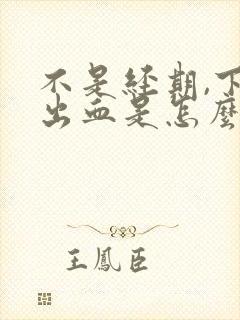 不是经期,下
出血是怎麼
王鳳臣